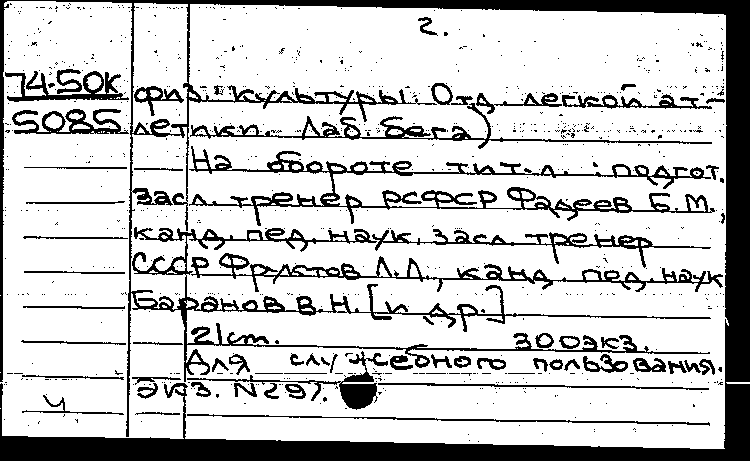 2.
74-50К физ. культуры. Отд. легкой ат-
5085 летики. Лаб. бега).
На обороте тит.л.: подгот.
засл. тренер РСФСР Фадеев Б.М.,
канд. пед. наук, засл. тренер
СССР Фруктов А.Л., канд. пед. наук
Баранов В.Н. [и др.].
21cm. 300экз.
Для служебного пользования.
Экз. N297.
ч